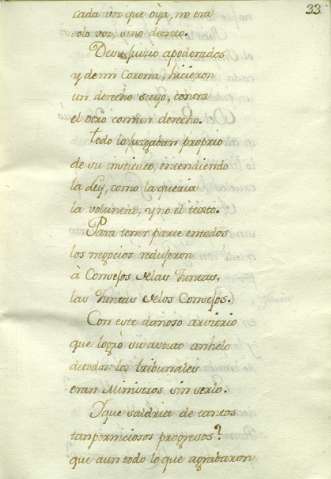 33
cada vez que oýa, no era
solo voz, sino decreto.
De su juizio apoderados
y de mi Corona, hicieron
un derecho suyo, contra
el otro comun derecho.
Todo lo juzgaban proprio
de su instituto, entendiendo
la Ley, como la queria
la voluntad, y no el texto.
Para tener parte en todos
los negocios redujeron
à Consejos las Juntas,
las Juntas à los Consejos.
Con este dañoso arvitrio
que logrò su astuto anhelo
de todos los tribunales
eran Ministros sin serlo.
que saldria de tantos
tan perniciosos progresos?
que aun todo lo que agrabaron